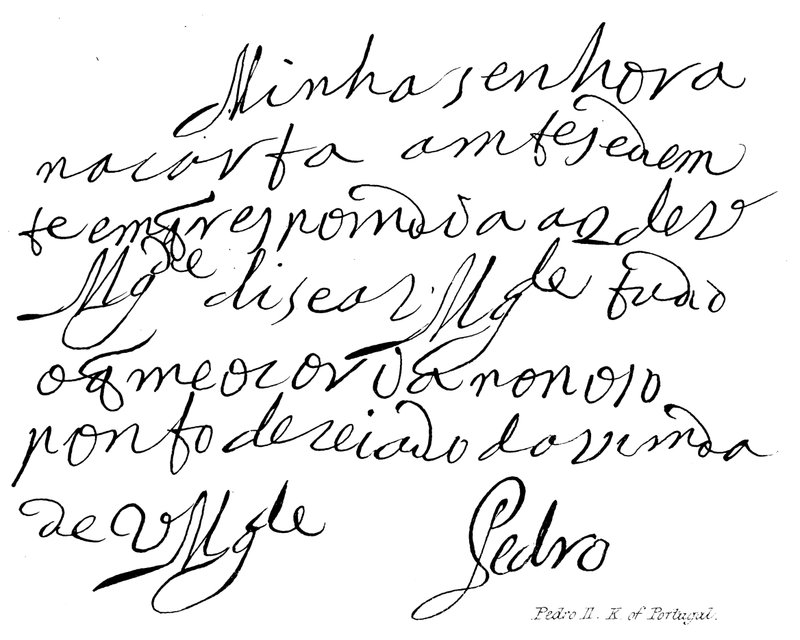 Minha senhora
na carta amtesedem
te em q respomdia ao de V
Mgde dise a V Mgde tudo
o q me ocoria no noso
ponto deseiado da vimda
de V Mgde Pedro
Pedro II. K. of Portugal.